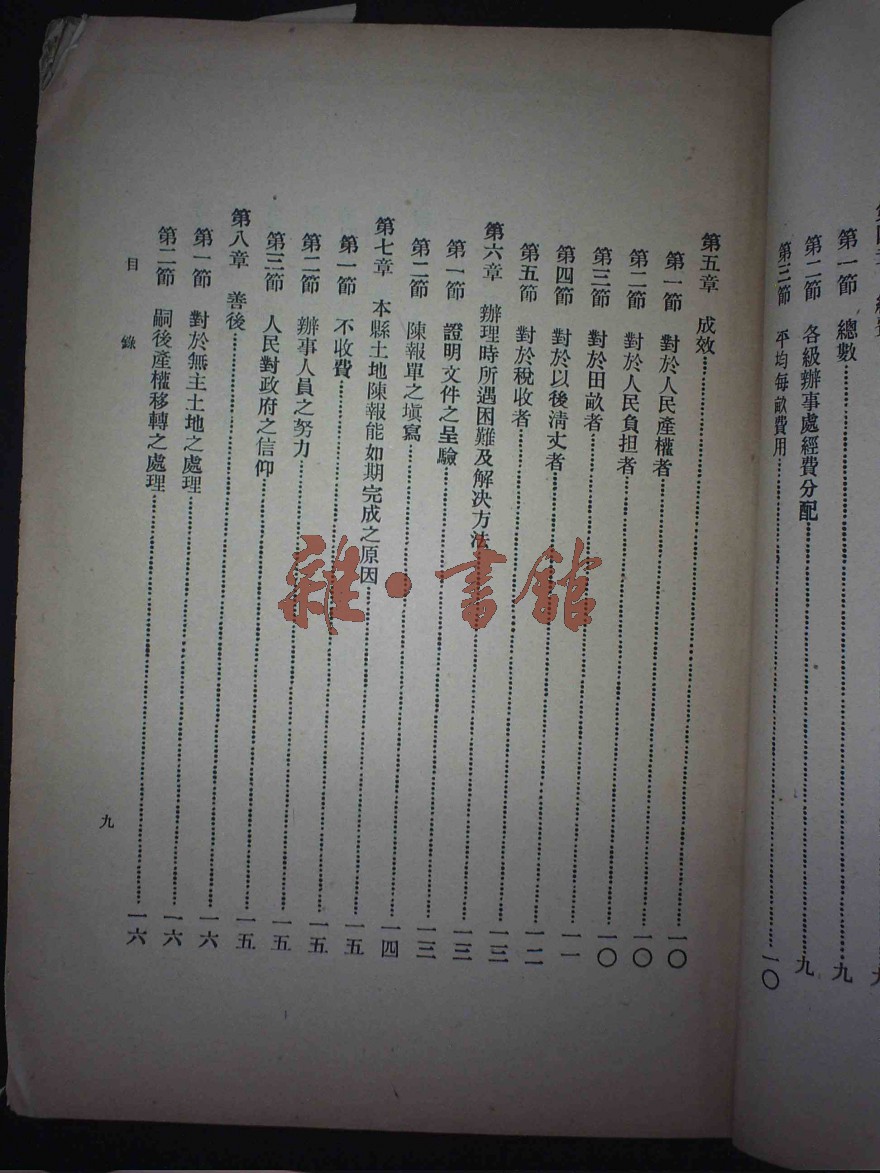 第一節 總數……九
第二節 各級辦事處經費分配……九
第三節 平均每畝費用……一〇
第五章 成效……一〇
第一節 對於人民產權者……一〇
第二節 對於人民負担者……一〇
第三節 對於田畝者……一一
第四節 對於以後清丈者……一二
第五節 對於稅收者……一三
第六章 辦理時所遇困難及解决方法……一三
第一節 證明文件之呈驗……一三
第二節 陳報單之塡寫……一四
第七章 本縣土地陳報能如期完成之原因……一五
第一節 不收費……一五
第二節 辦事人員之努力……一五
第三節 人民對政府之信仰……一五
第八章 善後……一六
第一節 對於無主土地之處理……一六
第二節 嗣後產權移轉之處理……一六
目錄
九
雜·書館